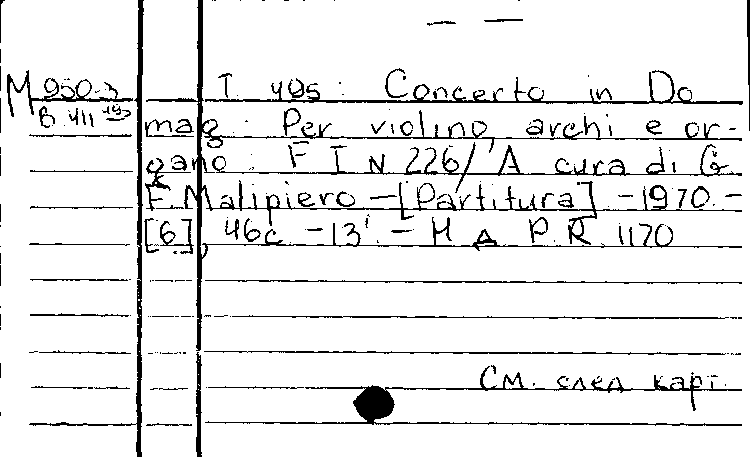 М 950-3 T. 495: Concerto in Do
B. VII mag: Per violino, archi e or-
gano: F I N 226/ A cura di G.
F. Malipiero —[Partitura] -1970.-
[6], 46c. -13'. - M Δ P.R. 1170
См. след карт.